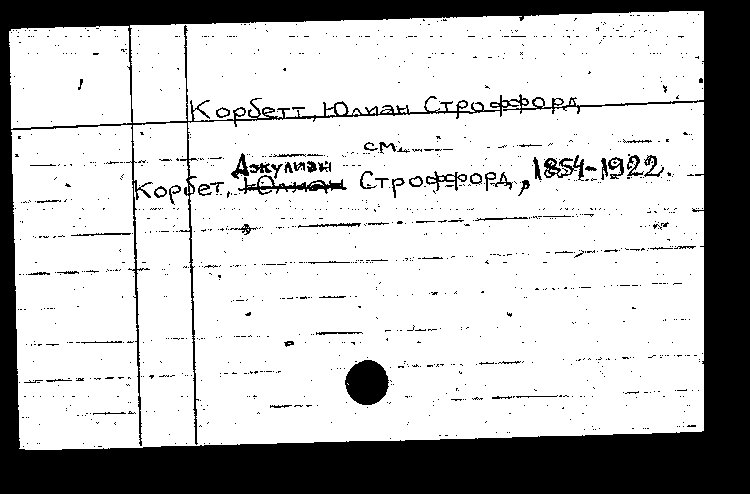 Корбетт, Юлиан Строффорд
см.
Джулиан
Корбет, Юлиан Строффорд, 1854-1922.